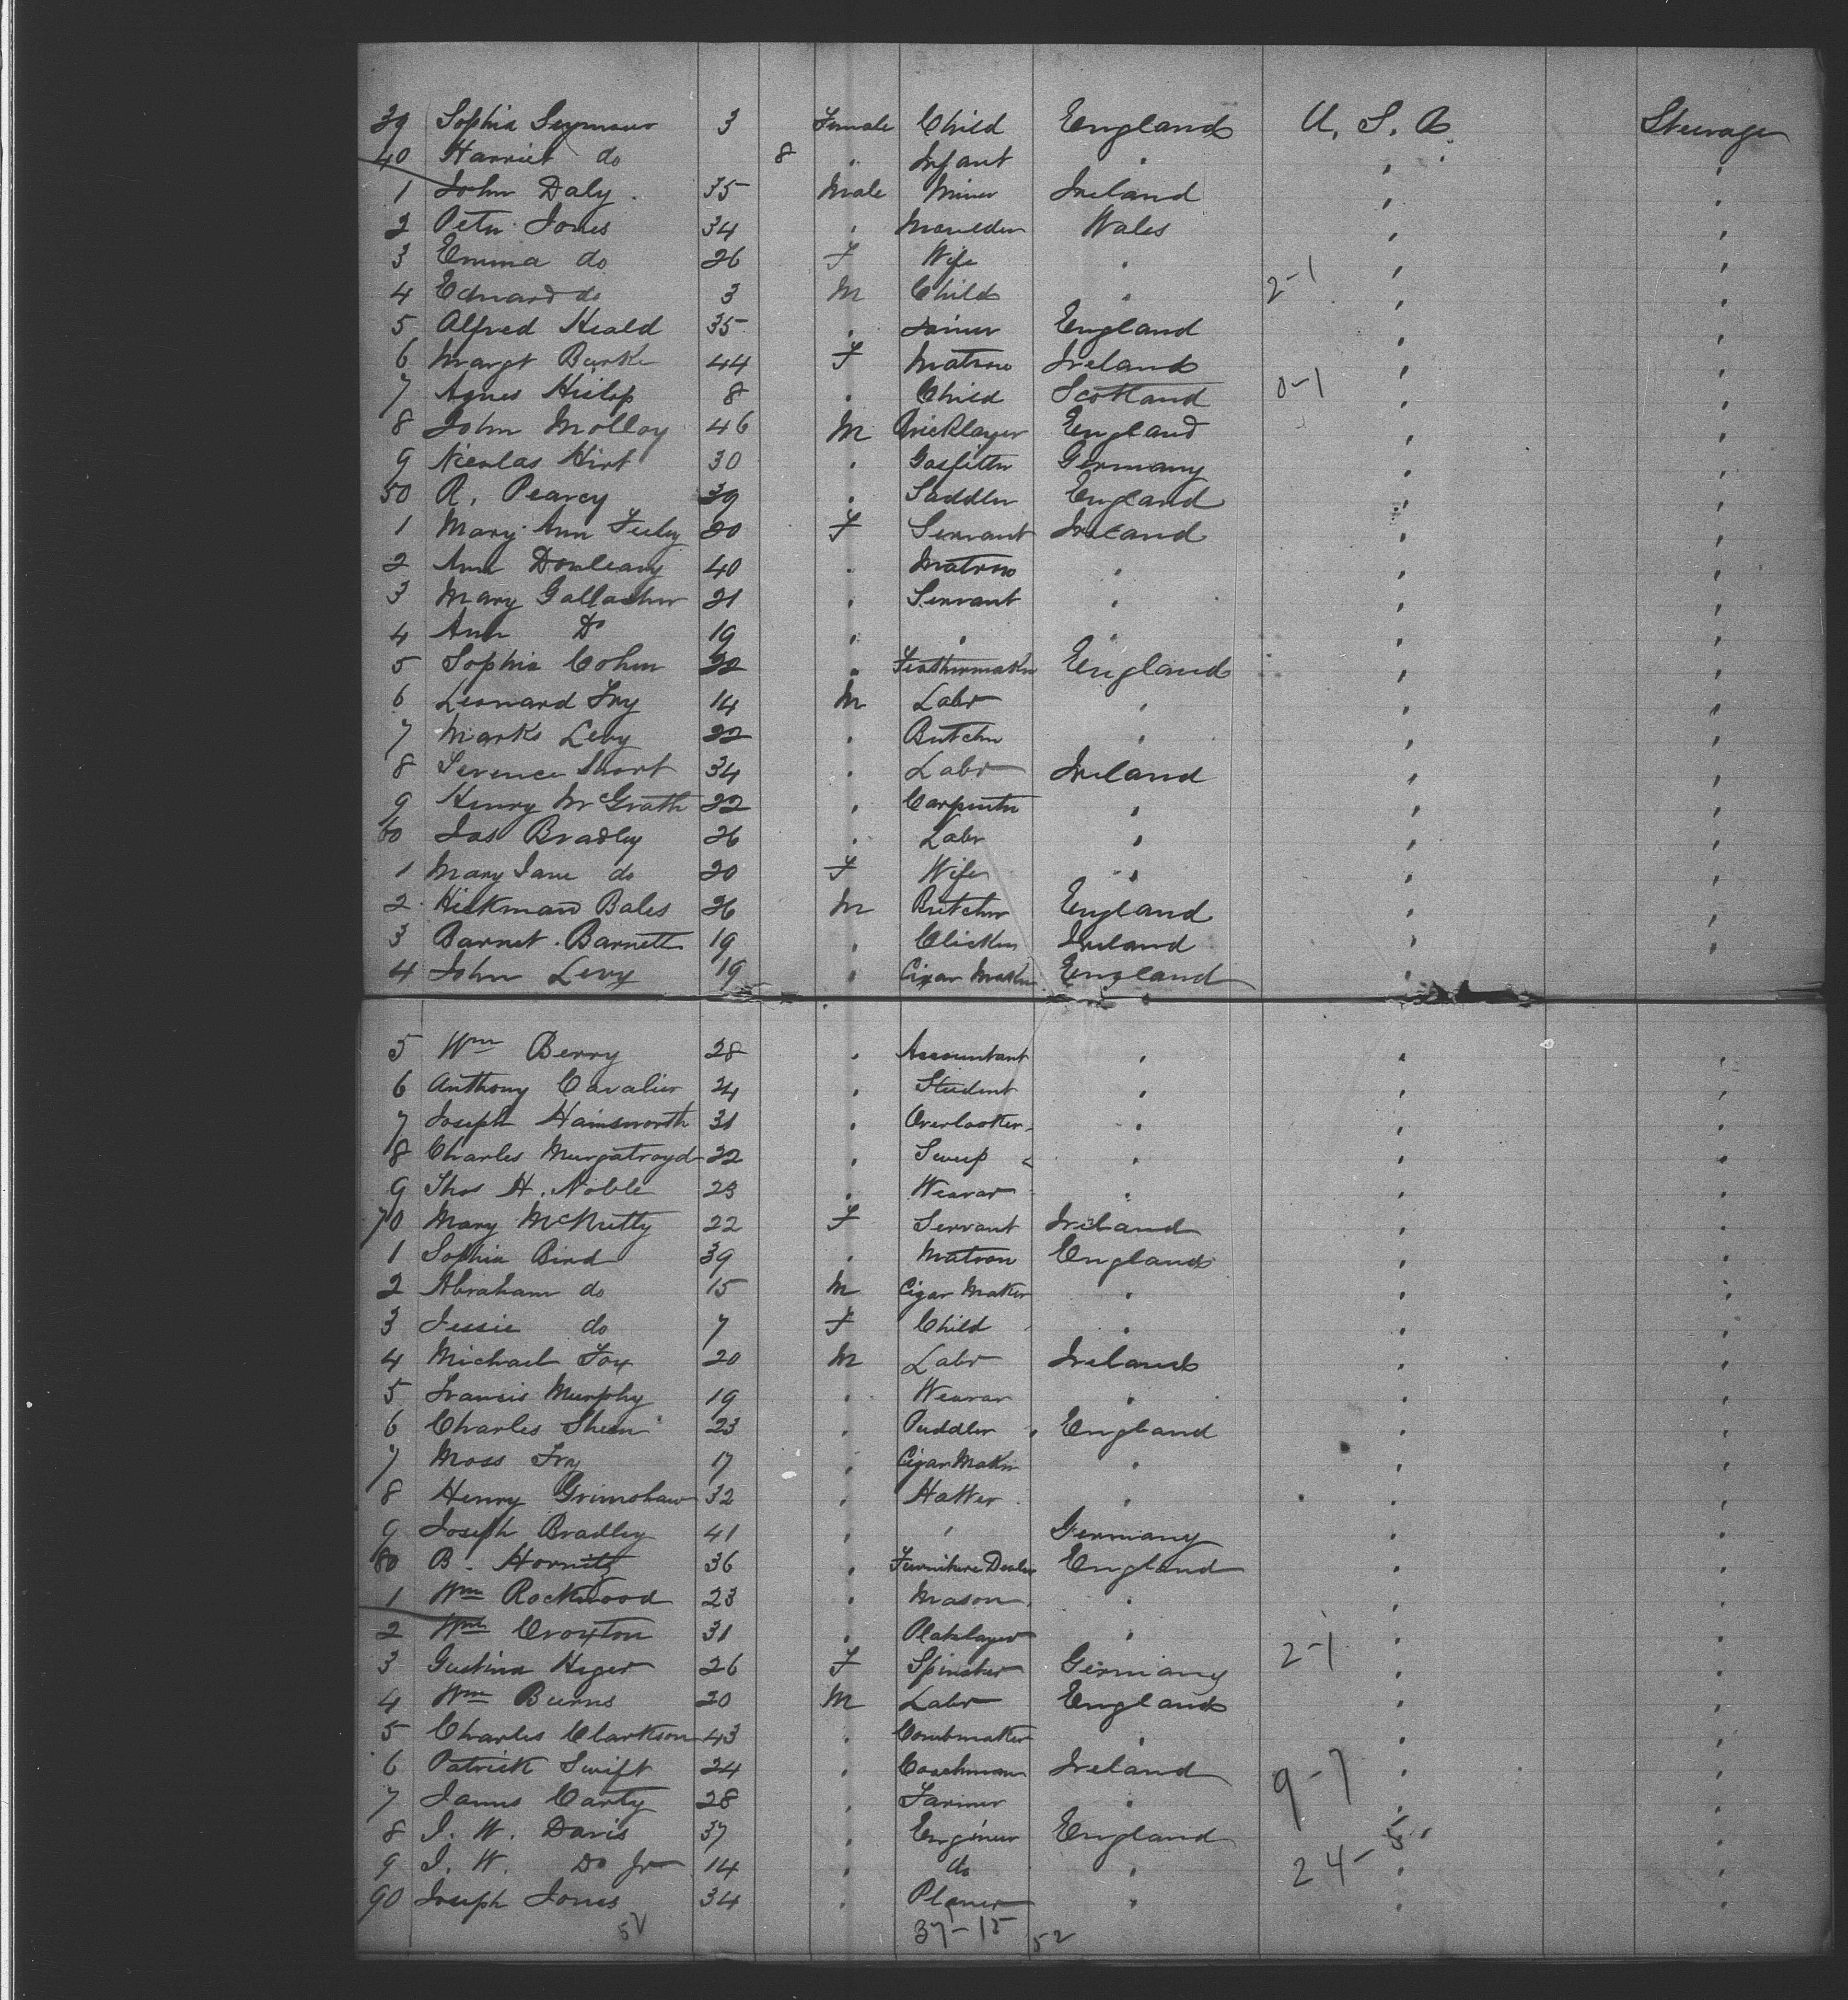 39 Sophia Seymour 3 Female Child England U. S. A. Steerage
40 Harriet do 8 " Infant " " "
1 John Daly 35 Male Miner Ireland " "
2 Peter Jones 34 " Moulder Wales " "
3 Emma do 26 F Wife " " "
4 Edward do 3 M Child " 2-1 " "
5 Alfred Heald 35 " Joiner England " "
6 Margt Burke 44 F Matron Ireland " "
7 Agnes Hislop 8 " Child Scotland 0-1 " "
8 John Molloy 46 M Bricklayer England " "
9 Nicolas Hirt 30 " Gasfitter Germany " "
50 R. Pearcy 39 " Saddler England " "
1 Mary Ann Feeley 20 F Servant Ireland " "
2 Ann Donleavy 40 " Matron " " "
3 Mary Gallacher 21 " Servant " " "
4 Ann Do 19 " " " " "
5 Sophia Cohen 22 " Feathermaker England " "
6 Leonard Fry 14 M Labr " " "
7 Marks Levy 22 " Butcher " " "
8 Terence Short 34 " Labr Ireland " "
9 Henry McGrath 22 " Carpenter " " "
60 Jas Bradley 26 " Labr " " "
1 Mary Jane do 20 F Wife " " "
2 Hickman Bales 26 M Butcher England " "
3 Barnet Barnett 19 " Clicker Ireland " "
4 John Levy 19 " Cigar Maker England "
5 Wm Berry 28 " Accountant " " "
6 Anthony Cavalier 24 " Student " " "
7 Joseph Hainsworth 31 " Overlooker " " "
8 Charles Murgatroyd 22 " Sweep " " "
9 Thos H. Noble 23 " Weaver " " "
70 Mary McNutty 22 F Servant Ireland " "
1 Sophia Bird 39 " Matron England " "
2 Abraham do 15 M Cigar Maker " " "
3 Jessie do 7 F Child " " "
4 Michael Fox 20 M Labr Ireland " "
5 Francis Murphy 19 " Weaver " " "
6 Charles Sheen 23 " Puddler England " "
7 Moss Fry 17 " Cigar Maker " " "
8 Henry Grimshaw 32 " Hatter " " "
9 Joseph Bradley 41 " " Germany " "
80 B. Hornitz 36 " Furniture Dealer England " "
1 Wm Rockwood 23 " Mason " " "
2 Wm Croxton 31 " Platelayer " 2-1 " "
3 Gustina Heger 26 F Spinster Germany " "
4 Wm Burns 20 M Labr England " "
5 Charles Clarkson 43 " Combmaker " " "
6 Patrick Swift 24 " Coachman Ireland 9-7 " "
7 James Carty 28 " Farmer " " "
8 J. W. Davis 37 " Engineer England " "
9 J. W. Do Jr 14 " do " 24-5 " "
90 Joseph Jones 34 " Planer " " "
52 37-15 52